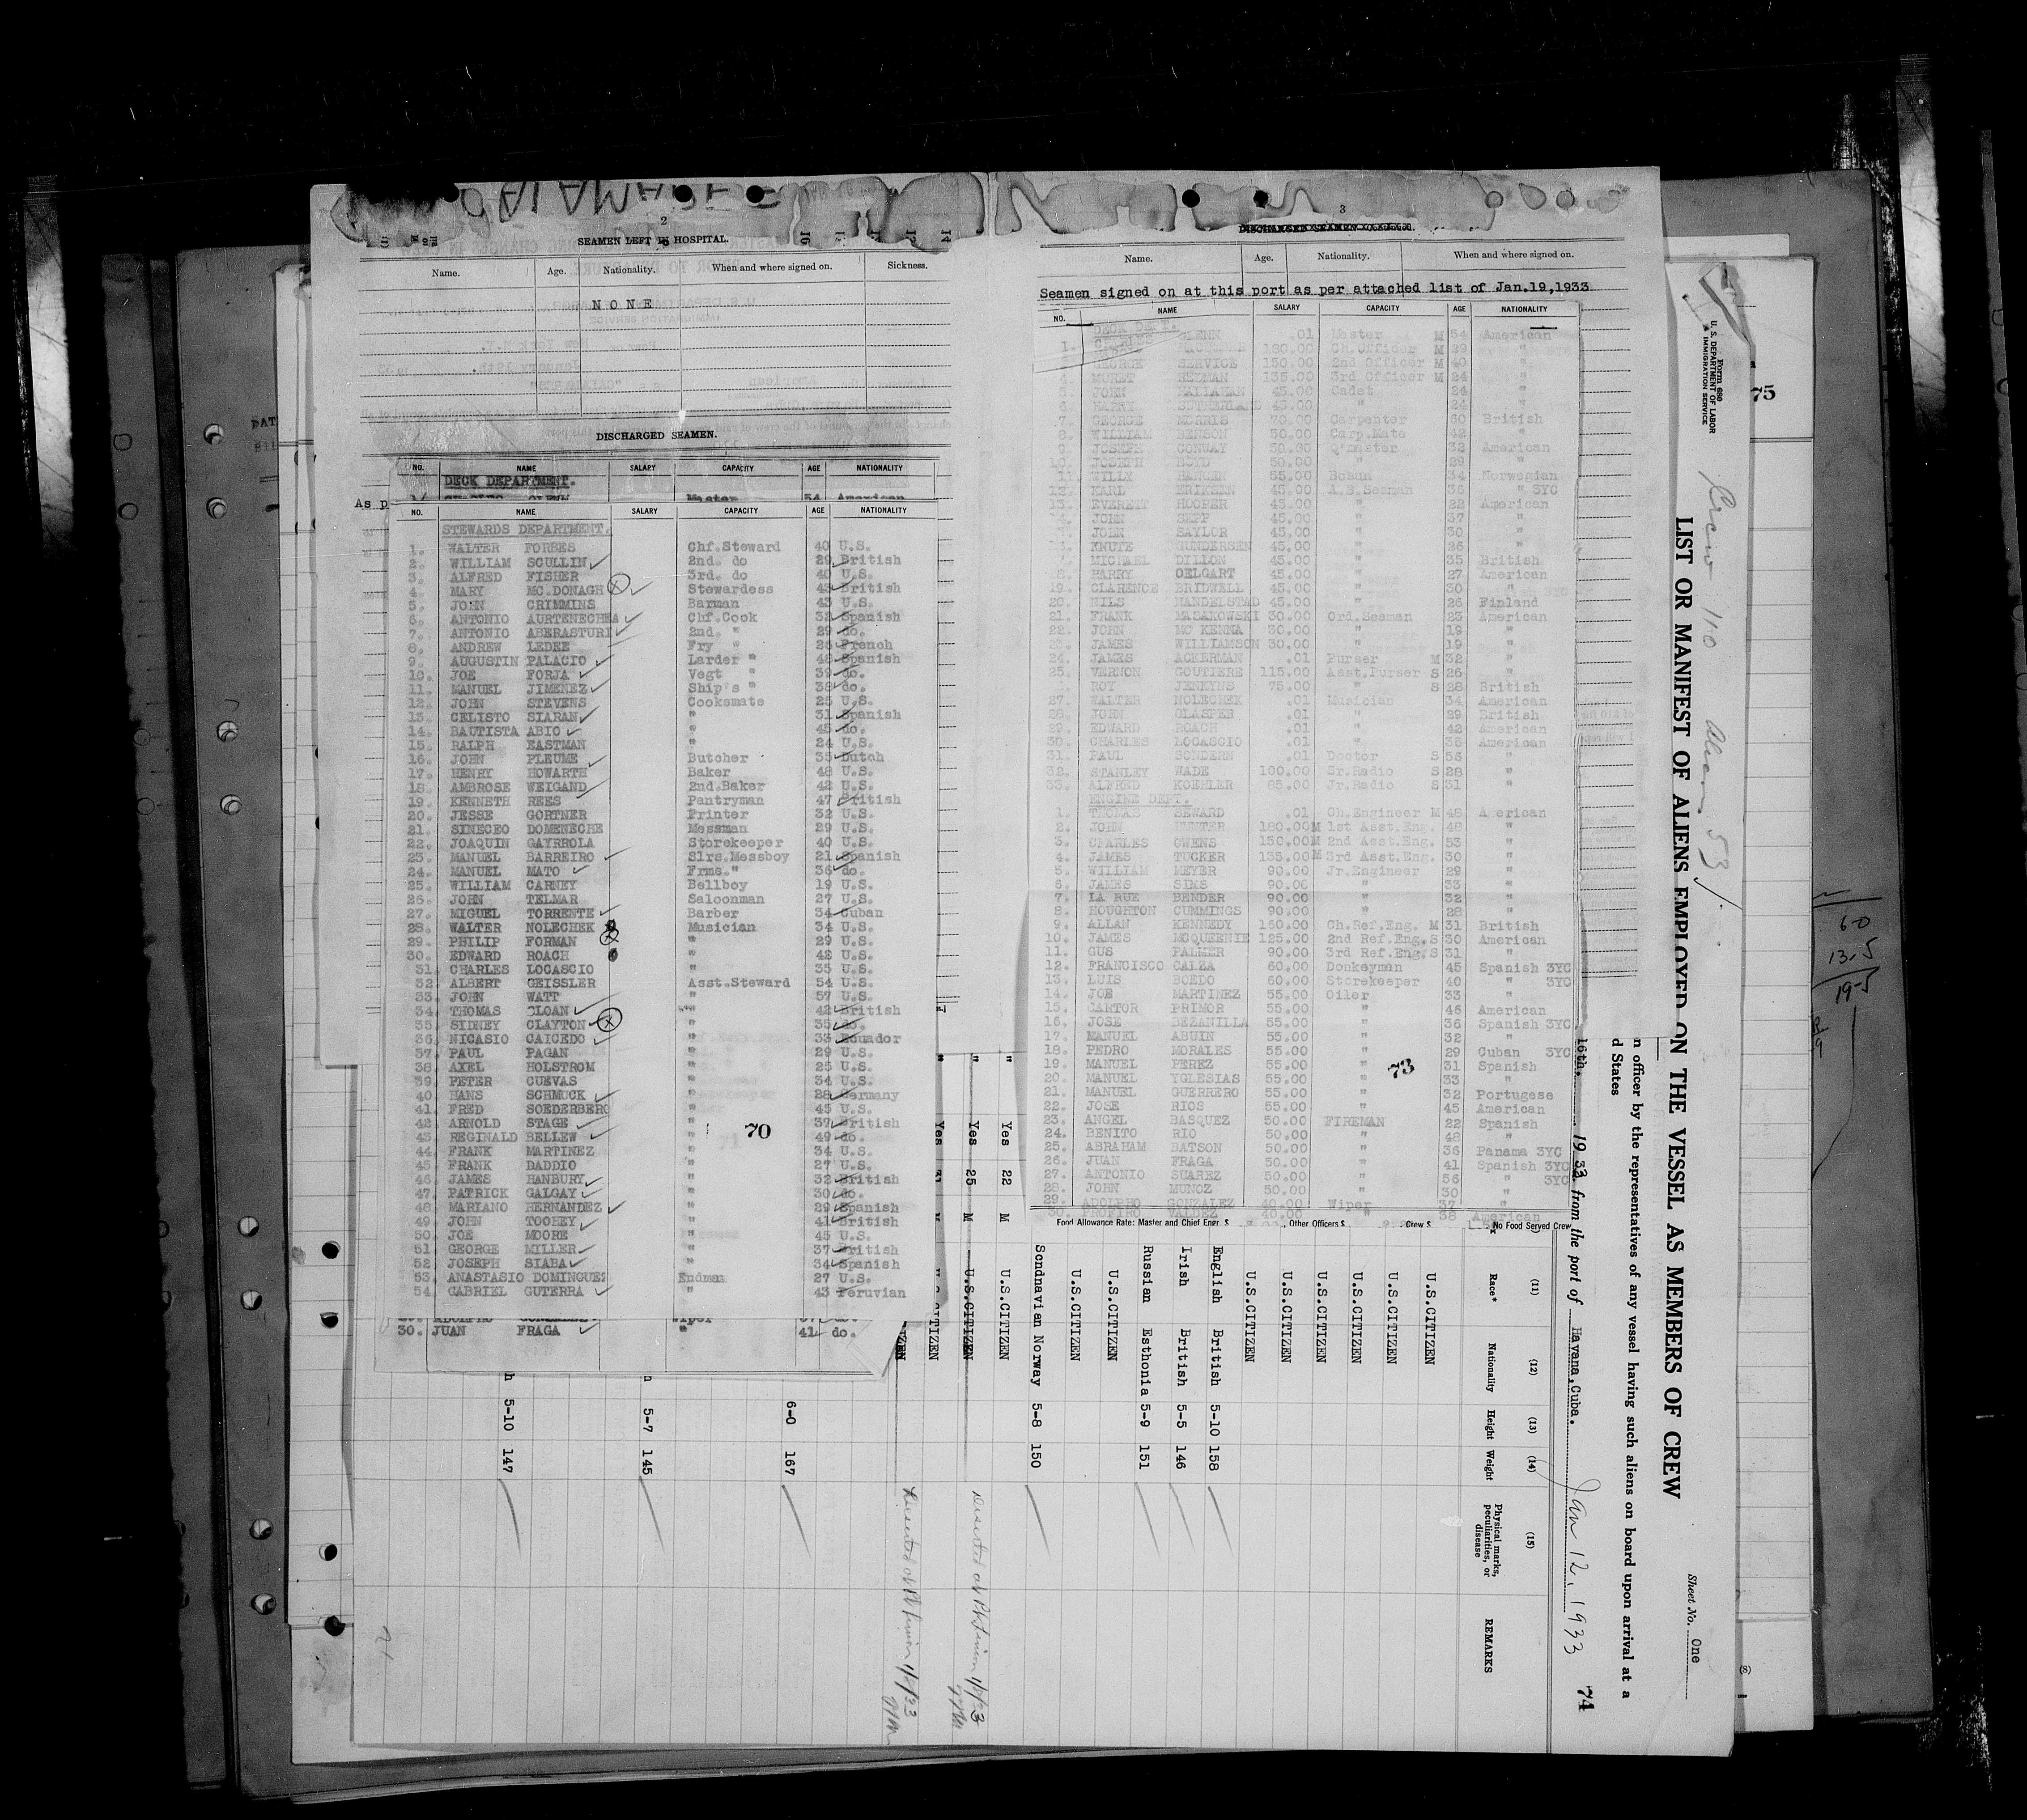 CALAMARES
2
SEAMEN LEFT IN HOSPITAL.
Name. Age. Nationality. When and where signed on. Sickness.
N O N E
DISCHARGED SEAMEN.
NO. NAME SALARY CAPACITY AGE NATIONALITY
DECK DEPARTMENT.
As p
Master 54 American
NO. NAME SALARY CAPACITY AGE NATIONALITY
STEWARDS DEPARTMENT.
1. WALTER FORBES Chf.Steward 40 U.S.
2. WILLIAM SCULLIN 2nd. do 29 British
3. ALFRED FISHER 3rd. do 40 U.S.
4. MARY MC.DONAGH Stewardess 43 British
5. JOHN CRIMMINS Barman 43 U.S.
6. ANTONIO AURTENECHEA Chf.Cook 32 Spanish
7. ANTONIO ABERASTURI 2nd. " 29 do.
8. ANDREW LEDEE Fry " 25 French
9. AUGUSTIN PALACIO Larder " 48 Spanish
10. JOE FORJA Vegt " 39 do.
11. MANUEL JIMENEZ Ship's " 38 do.
12. JOHN STEVENS Cooksmate 25 U.S.
13. CELISTO SIARAN " 31 Spanish
14. BAUTISTA ABIO " 45 do.
15. RALPH EASTMAN " 24 U.S.
16. JOHN PLEUME Butcher 35 Dutch
17. HENRY HOWARTH Baker 48 U.S.
18. AMBROSE WEIGAND 2nd.Baker 42 U.S.
19. KENNETH REES Pantryman 47 British
20. JESSE GORTNER Printer 32 U.S.
21. SINECEO DOMENECHE Messman 29 U.S.
22. JOAQUIN GAYRROLA Storekeeper 40 U.S.
23. MANUEL BARREIRO Slrs.Messboy 21 Spanish
24. MANUEL MATO Frms." 36 do.
25. WILLIAM CARNEY Bellboy 19 U.S.
26. JOHN TELMAR Saloonman 27 U.S.
27. MIGUEL TORRENTE Barber 34 Cuban
28. WALTER NOLECHEK Musician 34 U.S.
29. PHILIP FORMAN " 29 U.S.
30. EDWARD ROACH " 42 U.S.
31. CHARLES LOCASCIO " 35 U.S.
32 ALBERT GEISSLER Asst.Steward 54 U.S.
33. JOHN WATT " 57 U.S.
34 THOMAS CLOAN " 42 British
35. SIDNEY CLAYTON " 35 do.
36. NICASIO CAICEDO " 33 Ecuador
37. PAUL PAGAN " 29 U.S.
38 AXEL HOLSTROM " 25 U.S.
39. PETER CUEVAS " 34 U.S.
40 HANS SCHMUCK " 28 Germany
41. FRED SOEDERBERG " 45 U.S.
42 ARNOLD STAGE " 37 British
43. REGINALD BELLEW " 49 do.
44. FRANK MARTINEZ " 34 U.S.
45 FRANK DADDIO " 27 U.S.
46. JAMES HANBURY " 32 British
47. PATRICK GALGAY " 30 do.
48. MARIANO HERNANDEZ " 29 Spanish
49. JOHN TOOHEY " 41 British
50. JOE MOORE " 45 U.S.
51. GEORGE MILLER " 37 British
52 JOSEPH SIABA " 34 Spanish
53. ANASTASIO DOMINGUES Endman 27 U.S.
54. GABRIEL GUTERRA " 43 Peruvian
70
30. JUAN FRAGA " 41 do.
3
Name. Age. Nationality. When and where signed on.
Seamen signed on at this port as per attached list of Jan.19,1933
NO. NAME SALARY CAPACITY AGE NATIONALITY
DECK DEPT.
1. GLENN .01 Master M 54 American
Ch.Officer M 29
GEORGE SERVICE 150.00 2nd Officer M 40 "
135.00 3rd Officer M 24 "
JOHN 45.00 Cadet 24 "
HARRY SUTHERLAND 45.00 " 24 "
7. GEORGE MORRIS 70.00 Carpenter 60 British
8. WILLIAM BENSON 50.00 Carp.Mate 42 "
9. JOSEPH CONWAY 50.00 Q'master 32 American
10. JOSEPH BOYD 50.00 " 29 "
11. WILLY 55.00 Bosun 34 Norwegian
12. KARL ERIKSEN 45.00 A.B.Seaman 36 " 3YC
13. EVERETT HOOPER 45.00 " 22 American
JOHN 45.00 " 37 "
JOHN SAYLOR 45.00 " 30 "
KNUTE GUNDERSEN 45.00 " 26 "
MICHAEL DILLON 45.00 " 35 British
18. HARRY OELGART 45.00 " 27 American
19. CLARENCE BRIDWELL 45.00 " 30 "
20. NILS HANDELSTAD 45.00 " 26 Finland
21. FRANK MASAKOWSKI 30.00 Ord.Seaman 23 American
22. JOHN MC KENNA 30.00 " 19 "
23. JAMES WILLIAMSON 30.00 " 19 "
24. JAMES ACKERMAN .01 Purser M 32 "
25. VERNON GOUTIERE 115.00 Asst.Purser S 26 "
ROY JENKYNS 75.00 " S 28 British
27. WALTER NOLECHEK .01 Musician 34 American
28. JOHN GLASPEN .01 " 29 British
29. EDWARD ROACH .01 " 42 American
30. CHARLES LOCASCIO .01 " 35 American
31. PAUL SONDERN .01 Doctor S 56 "
32. STANLEY WADE 100.00 Sr.Radio S 28 "
33. ALFRED KOEHLER 85.00 Jr.Radio S 31 "
ENGINE DEPT.
1. THOMAS SEWARD .01 Ch.Engineer M 48 American
2. JOHN 180.00 M 1st Asst.Eng. 48 "
3. CHARLES OWENS 150.00 M 2nd Asst.Eng. 53 "
4. JAMES TUCKER 135.00 M 3rd Asst.Eng. 30 "
5. WILLIAM MEYER 90.00 Jr.Engineer 29 "
6. JAMES SIMS 90.00 " 33 "
7. LA RUE BENDER 90.00 " 32 "
8. HOUGHTON CUMMINGS 90.00 " 28 "
9. ALLAN KENNEDY 160.00 Ch.Ref.Eng. M 31 British
10. JAMES MCQUEENIE 125.00 2nd Ref.Eng.S 30 American
11. GUS PALMER 90.00 3rd Ref.Eng.S 31 "
12. FRANCISCO CALZA 60.00 Donkeyman 45 Spanish 3YC
13. LUIS BOEDO 60.00 Storekeeper 40 " 3YC
14. JOE MARTINEZ 55.00 Oiler 33 "
15. CARTOR PRIMOR 55.00 " 46 American
16. JOSE BEZANILLA 55.00 " 36 Spanish 3YC
17. MANUEL ABUIN 55.00 " 32 "
18. PEDRO MORALES 55.00 " 29 Cuban 3YC
19. MANUEL PEREZ 55.00 " 31 Spanish
20. MANUEL YGLESIAS 55.00 " 33 "
21. MANUEL GUERRERO 55.00 " 32 Portugese
22. JOSE RIOS 55.00 " 45 American
23. ANGEL BASQUEZ 50.00 FIREMAN 22 Spanish
24. BENITO RIO 50.00 " 48 "
25. ABRAHAM BATSON 50.00 " 36 Panama 3YC
26. JUAN FRAGA 50.00 " 41 Spanish 3YC
27. ANTONIO SUAREZ 50.00 " 56 " 3YC
28. JOHN MUNOZ 50.00 " 30 "
29. ADOLPHO GONZALEZ 40.00 Wiper 37 "
30. PROFIRO VALDEZ 40.00 " 38 American
73
Food Allowance Rate: Master and Chief Engr. $ Other Officers $ Crew $ No Food Served Crew
Form 689
U. S. DEPARTMENT OF LABOR
IMMIGRATION SERVICE
Crew 110 Aliens 53
LIST OR MANIFEST OF ALIENS EMPLOYED ON THE VESSEL AS MEMBERS OF CREW
Sheet No. One
n officer by the representatives of any vessel having such aliens on board upon arrival at a
d States
16th. 1933 from the port of Havana,Cuba. Jan 12, 1933
74
(11) (12) (13) (14) (15)
Race* Nationality Height Weight Physical marks, peculiarities, or disease REMARKS
U.S.CITIZEN
U.S.CITIZEN
U.S.CITIZEN
U.S.CITIZEN
U.S.CITIZEN
U.S.CITIZEN
English British 5-10 158
Irish British 5-5 146
Russian Esthonia 5-9 151
U.S.CITIZEN
U.S.CITIZEN
Scndnavian Norway 5-8 150
" Yes 22 M U.S.CITIZEN
" Yes 25 M U.S.CITIZEN
" Yes 31 M U.S.CITIZEN
Deserted at Pt Limon 1/8/33
Deserted at Pt Limon 1/8/33
6-0 167
5-7 145
5-10 147
75
(8)
6-0
13.5
19-5